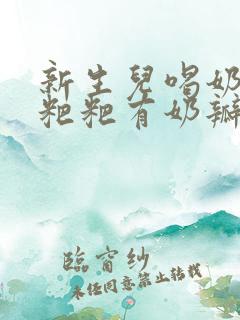 新生兒喝奶
粑粑有奶瓣
臨窗紗
未经同意禁止转载